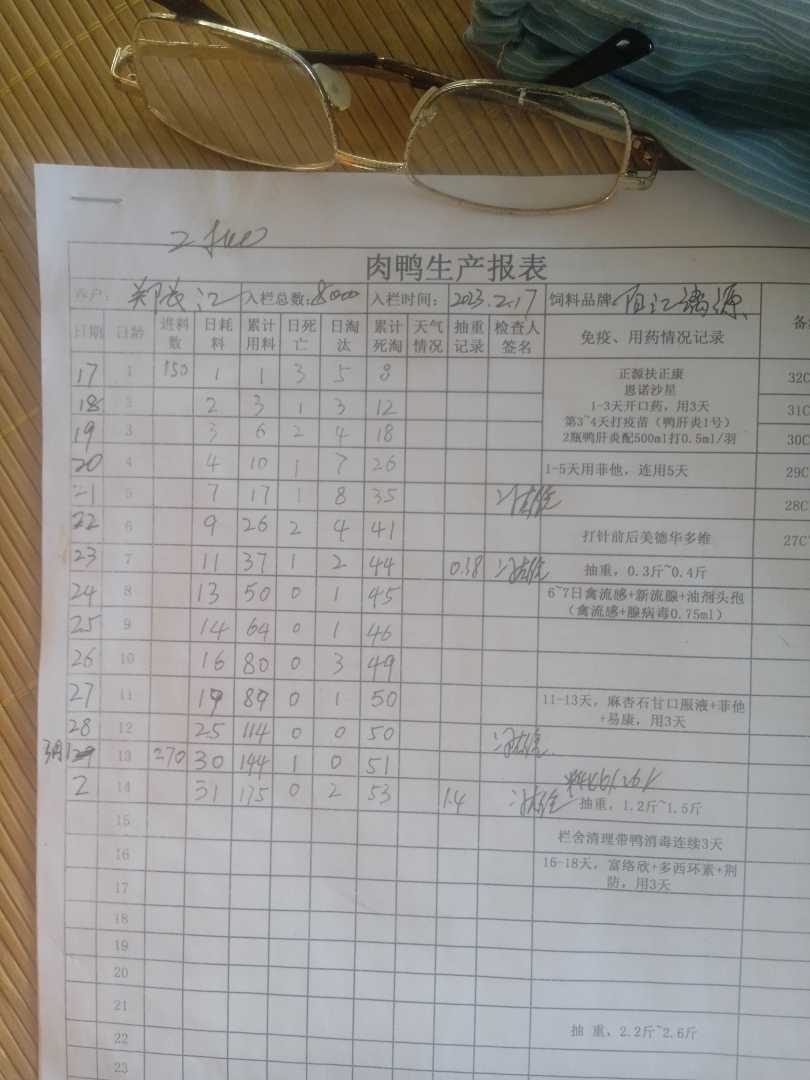 肉鸭生产报表
养户: 郑长江 入栏总数:8000 入栏时间: 2023.2.17 饲料品牌
日期 日龄 进料数 日耗料 累计用料 日死亡 日淘汰 累计死淘 天气情况 抽重记录 检查人签名 免疫、用药情况记录
17 1 150 1 1 3 5 8 正源扶正康
恩诺沙星
1-3天开口药，用3天
第3~4天打疫苗（鸭肝炎1号）
2瓶鸭肝炎配500ml打0.5ml/羽 32C
18 2 2 3 1 3 12 31C
19 3 3 6 2 4 18 30C
20 4 4 10 1 7 26 1-5天用菲他，连用5天 29C
21 5 7 17 1 8 35 28C
22 6 9 26 2 4 41 打针前后美德华多维 27C
23 7 11 37 1 2 44 0.38 抽重，0.3斤~0.4斤
24 8 13 50 0 1 45 6~7日禽流感+新流腺+油剂头孢
（禽流感+腺病毒0.75ml）
25 9 14 64 0 1 46
26 10 16 80 0 3 49
27 11 19 89 0 1 50 11-13天，麻杏石甘口服液+菲他
+易康，用3天
28 12 25 114 0 0 50
3月1 13 270 30 144 1 0 51
2 14 31 175 0 2 53 1.4 抽重，1.2斤~1.5斤
15
栏舍清理带鸭消毒连续3天
16 16-18天，富络欣+多西环素+荆
防，用3天
17
18
19
20
21
22 抽 重，2.2斤~2.6斤
23